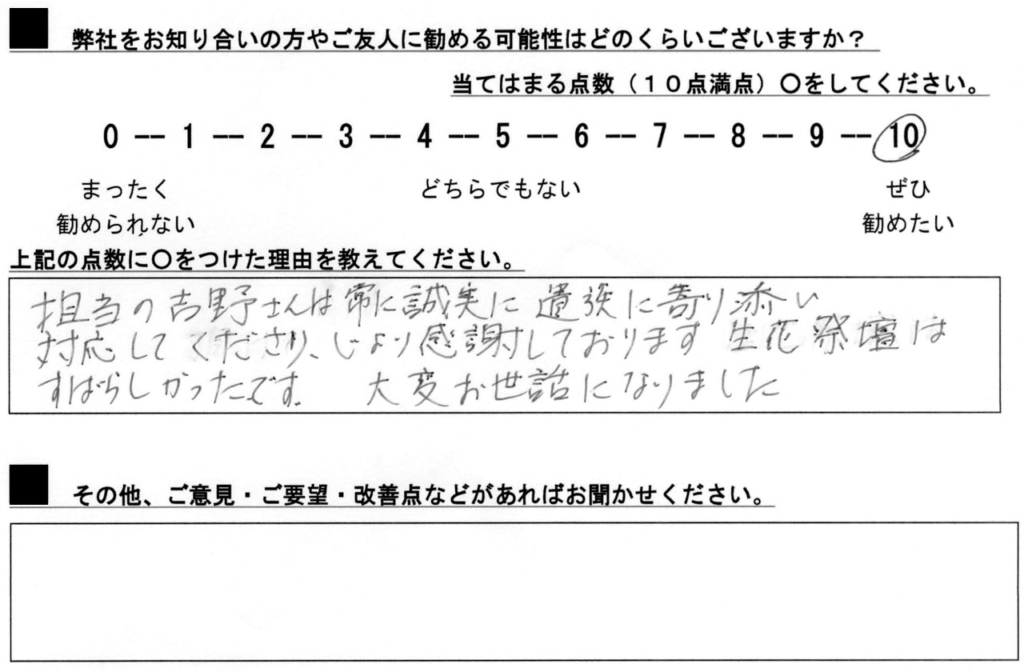 弊社をお知り合いの方やご友人に勧める可能性はどのくらいございますか？
当てはまる点数（１０点満点）〇をしてください。
0 ―― 1 ―― 2 ―― 3 ―― 4 ―― 5 ―― 6 ―― 7 ―― 8 ―― 9 ―― 10
まったく どちらでもない ぜひ
勧められない 勧めたい
上記の点数に〇をつけた理由を教えてください。
担当の吉野さんは常に誠実に遺族に寄り添い
対応してくださり、心より感謝しております 生花祭壇は
すばらしかったです。 大変お世話になりました
その他、ご意見・ご要望・改善点などがあればお聞かせください。